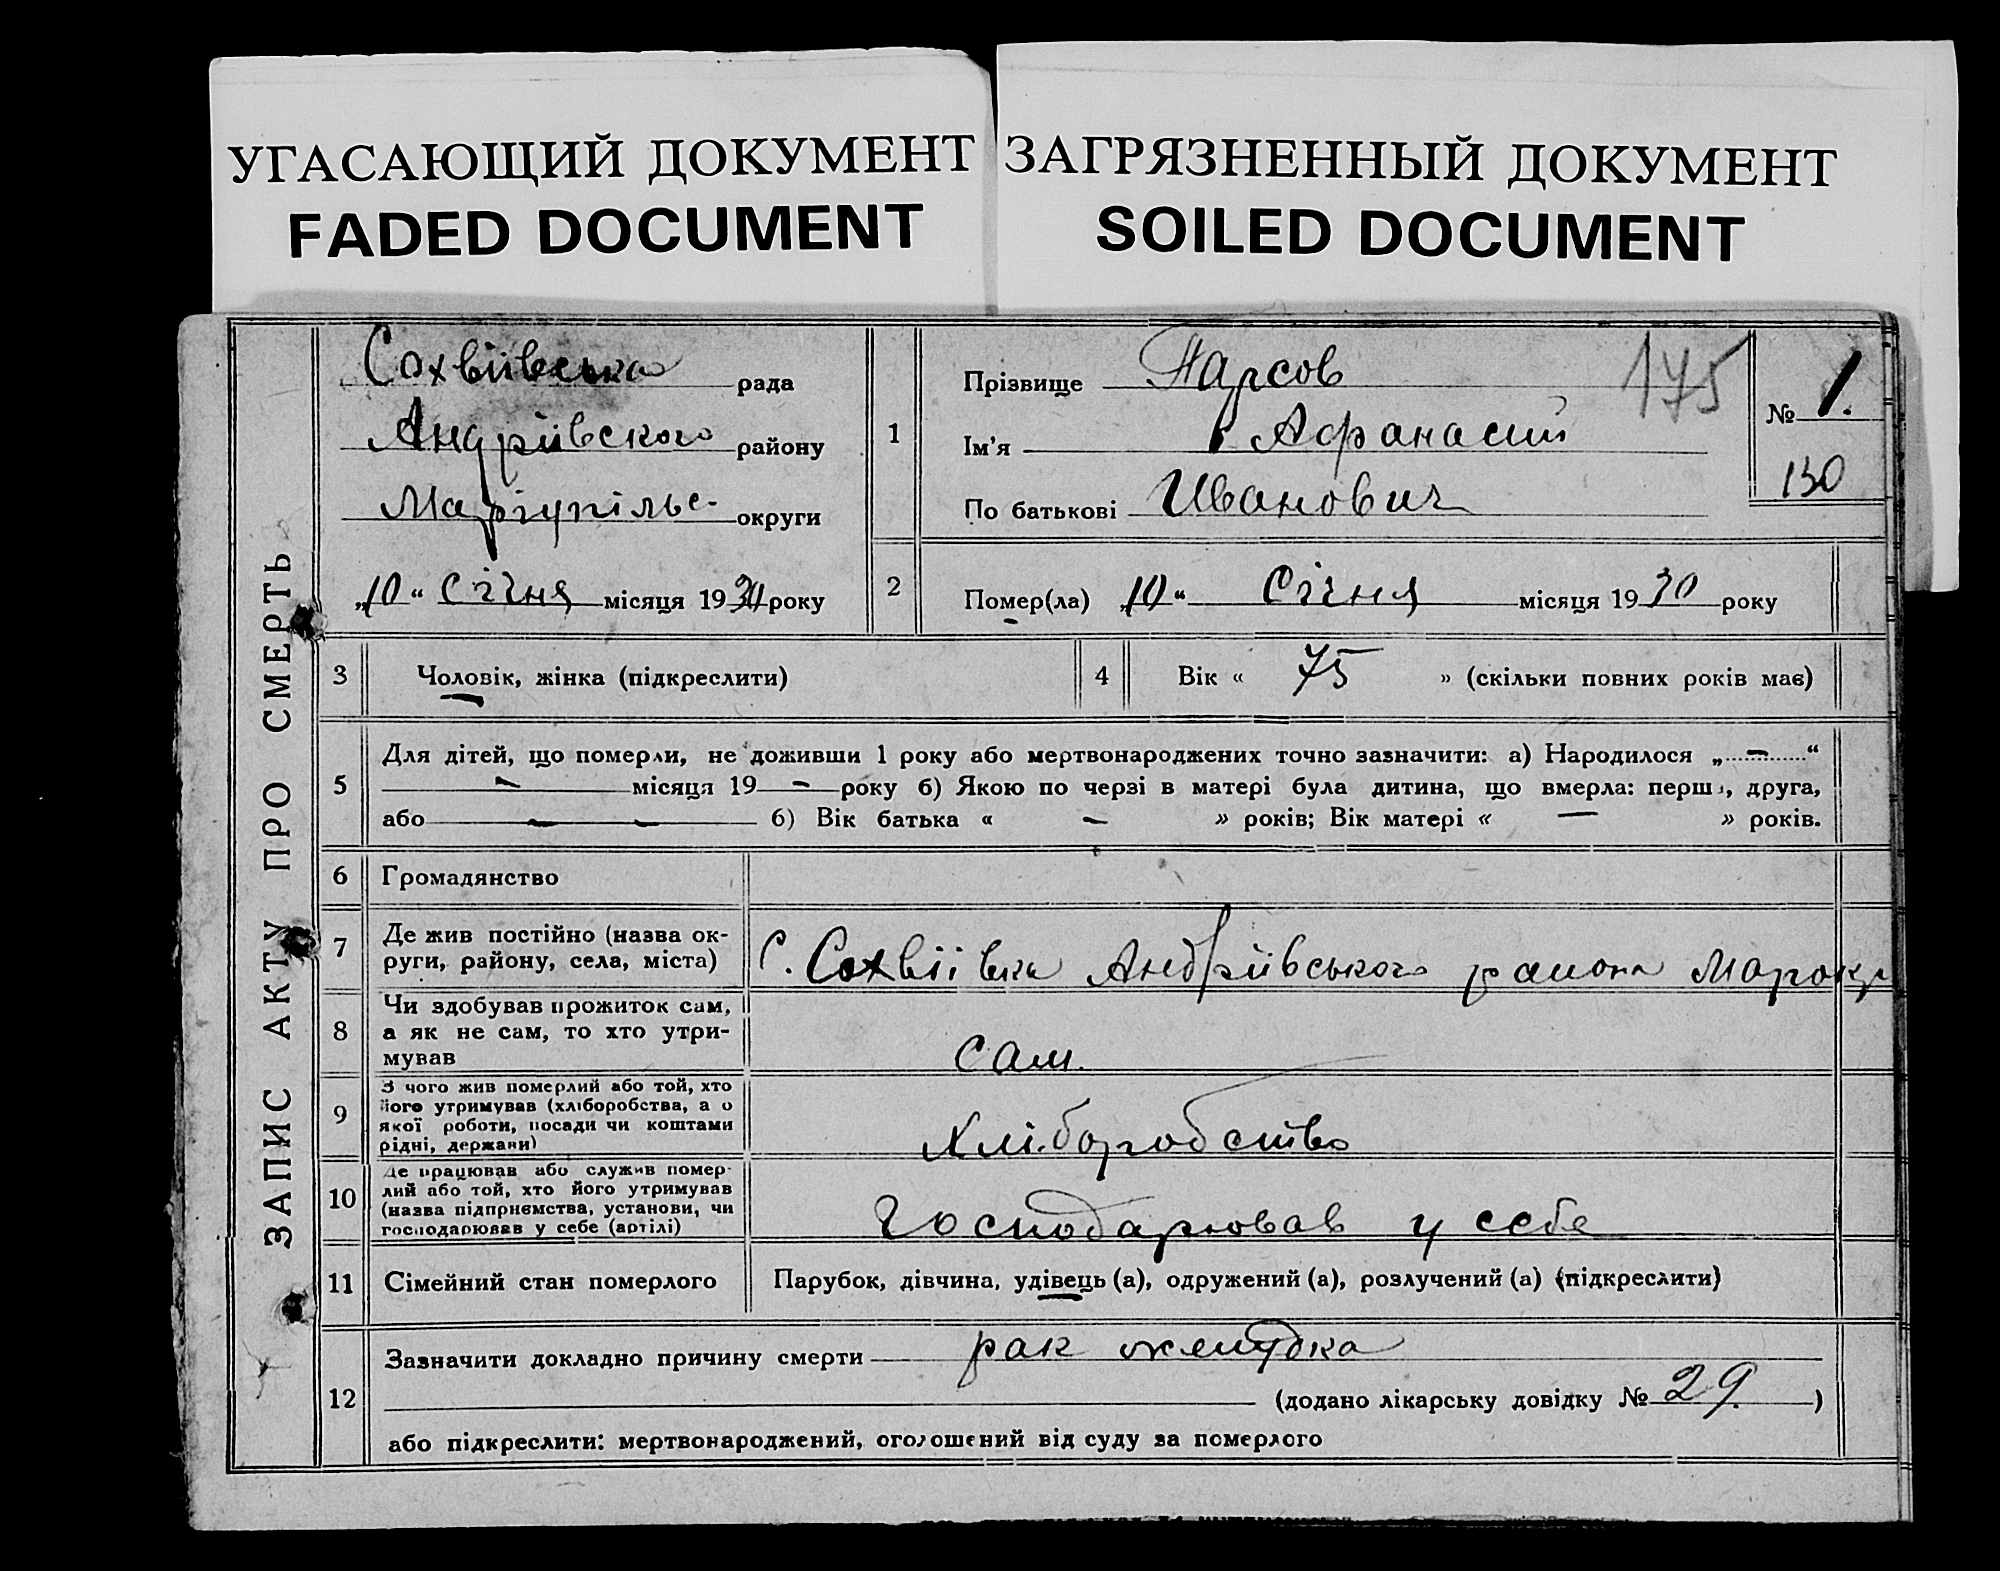 УГАСАЮЩИЙ ДОКУМЕНТ
FADED DOCUMENT
ЗАГРЯЗНЕННЫЙ ДОКУМЕНТ
SOILED DOCUMENT
ЗАПИС АКТУ ПРО СМЕРТЬ
Сохвіівська рада
Андріївского району
Маріупільс. округи
„10“ Січня місяця 1930 року
1
Прізвище Парсов 175
Ім'я Афанасий
По батькові Иванович
№ 1.
130
2
Помер(ла) „10“ Січня місяця 1930 року
3 Чоловік, жінка (підкреслити)
4 Вік « 75 » (скільки повних років має)
5 Для дітей, що померли, не доживши 1 року або мертвонароджених точно зазначити: а) Народилося „ — “
— місяця 19 — року б) Якою по черзі в матері була дитина, що вмерла: перша, друга,
або — — б) Вік батька « — » років; Вік матері « — » років.
6 Громадянство
7 Де жив постійно (назва ок-
руги, району, села, міста)
С. Сохвіівка Андріівського
8 Чи здобував прожиток сам,
а як не сам, то хто утри-
мував
сам.
9 З чого жив померлий або той, хто
його утримував (хліборобства, а о
якої роботи, посади чи коштами
рідні, держави)
Хліборобство
10 Де працював або служив помер-
лий або той, хто його утримував
(назва підприємства, установи, чи
господарював у себе (артілі)
Господарював у себе
11 Сімейний стан померлого Парубок, дівчина, удівець (а), одружений (а), розлучений (а) (підкреслити)
12 Зазначити докладно причину смерти рак желудка
(додано лікарську довідку № 29. )
або підкреслити: мертвонароджений, оголошений від суду за померлого